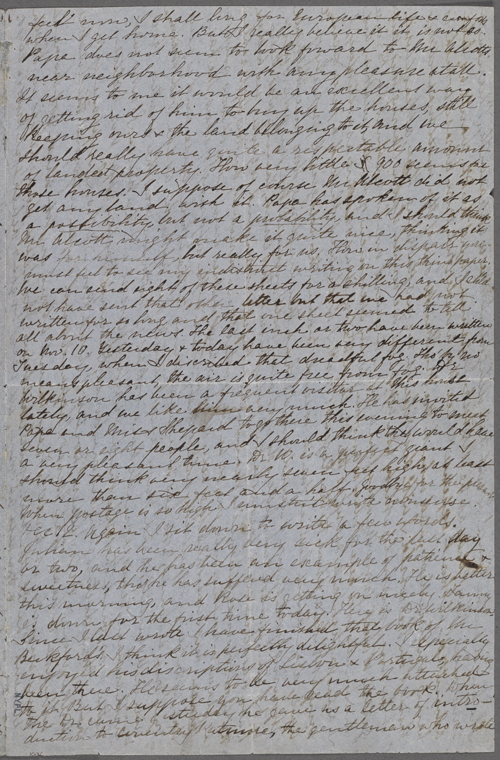 feel now, I shall long for European life & 
when I get home. But I really believe it it is not so.
Papa does not seem to look forward to Mr Alcotts
near neighborhood with any pleasure at all.
It seems to me it would be an excellent way
of getting rid of him to buy up the houses, still
keeping ours & the land belonging to it and we
should really have quite a respectable amount
of landed property. How very little $900 seems for
those houses. I suppose of course Mr Alcott did not
get any land with it. Papa has spoken of it as
a possibility but not a probability, and I should think
Mr Alcott might make it quite nice, thinking it
was for himself, but really for us. How in despair you
must feel to see my indistinct writing on this thin paper.
We can send eight of these sheets for a shilling, and I should
not have sent that other letter but that we had not
written for so long and that one sheet seemed to tell
all about the news. The last inch or two have been written
on Nov. 10. Yesterday & today have been very different from
Tuesday, when I described that dreadful fog. Tho' by no
means pleasant, the air is quite free from fog. Dr
Wilkinson has been a frequent visitor at this house
lately, and we like him very much. He has invited
Papa and Miss Shepard to go there this evening to meet
seven or eight people, and I should think they would have
a very pleasant time. Dr W. is a perfect giant I
should think very nearly seven feet high, at least
more than six feet and a half,
When postage is so high I must not write nonsense
Again I sit down to write a few words.
Julian has been really very sick for the last day
or two, and he has been an example of patience &
sweetness, tho' he has suffered very much. He is better
this morning, and Rose is getting on nicely.
down for the first time today.
Since I last wrote I have finished that book of Mr
Beckford's. I think it is perfectly delightful. I especially
enjoyed his discription of Lisbon & Portugal, having
been there. He seems to be very much attached
to But I suppose you have read the book. When
the Dr. came yesterday he gave us a letter of intro-
duction to Coventry Patmore, the gentleman who wrote